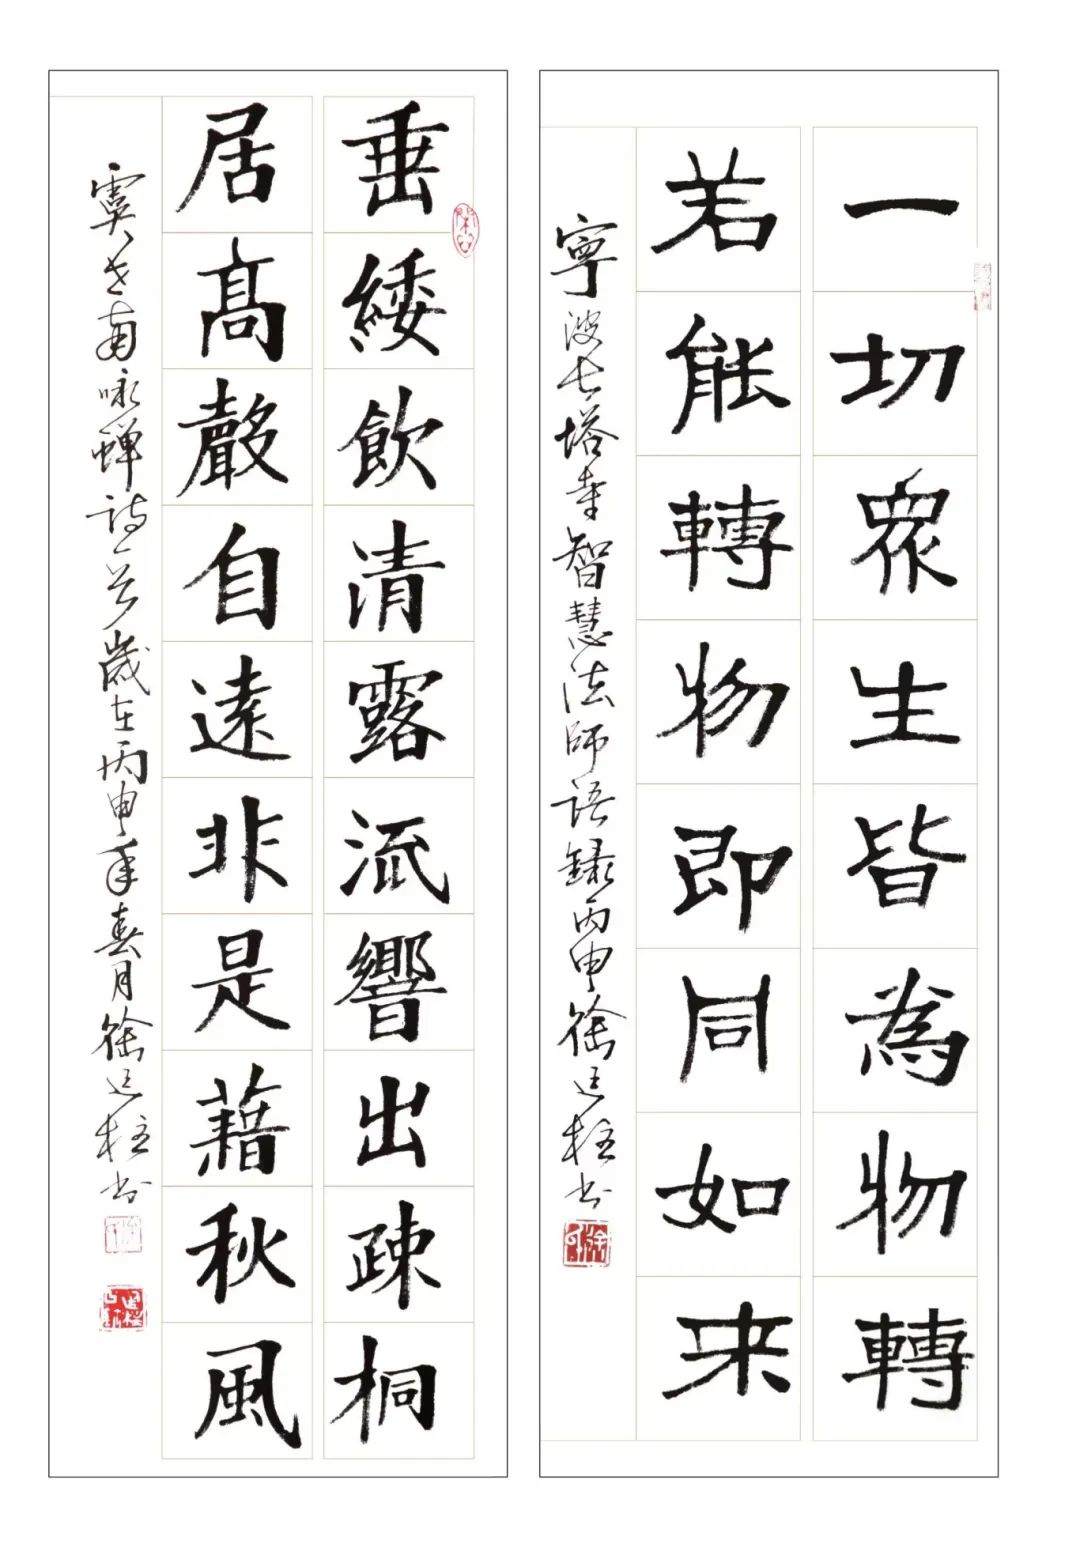 一切衆生皆為物轉
若能轉物即同如来
寧波七塔寺智慧法師語錄丙申徐廷柱书
垂緌飲清露流響出疎桐
居髙聲自遠非是藉秋風
虞世南咏蝉诗一首歲在丙申年春月徐廷柱书